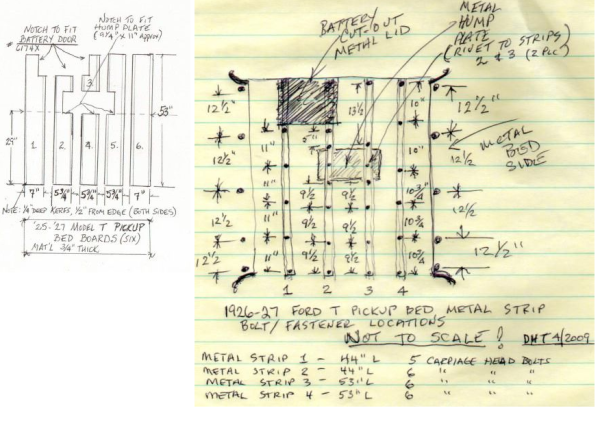 NOTCH TO FIT
HUMP PLATE
(9 1/4" x 11" approx)
NOTCH TO FIT
BATTERY DOOR
3
1.
2.
4.
5.
6.
53"
29"
7" 5 3/4" 5 3/4" 5 3/4" 7"
NOTE: 1/4" DEEP KERFS, 1/2" FROM EDGE (BOTH SIDES)
'25-'27 MODEL T PICKUP
BED BOARDS (SIX)
MAT'L 3/4" THICK
BATTERY
CUT-OUT
METAL LID
METAL
HUMP
PLATE
(RIVET TO STRIPS)
2 & 3 (2 PLC)
12 1/2" 13 1/2 10" 12 1/2"
METAL
BED
SIDE
12 1/2" 11" 5" 10" 12 1/2
11" 9 1/2 9 1/2 10 3/4"
12 1/2 11" 9 1/2 9 1/2 10 3/4 12 1/2
12 1/2" 11" 9 1/2 9 1/2 10 3/4 12 1/2"
1 2 3 4
1926-27 FORD T PICKUP BED METAL STRIP
BOLT/FASTENER LOCATIONS
NOT TO SCALE! DHT 4/2009
METAL STRIP 1 - 44" L 5 CARRIAGE HEAD BOLTS
METAL STRIP 2 - 44" L 6 " " "
METAL STRIP 3 - 53" L 6 " " "
METAL STRIP 4 - 53" L 6 " " "